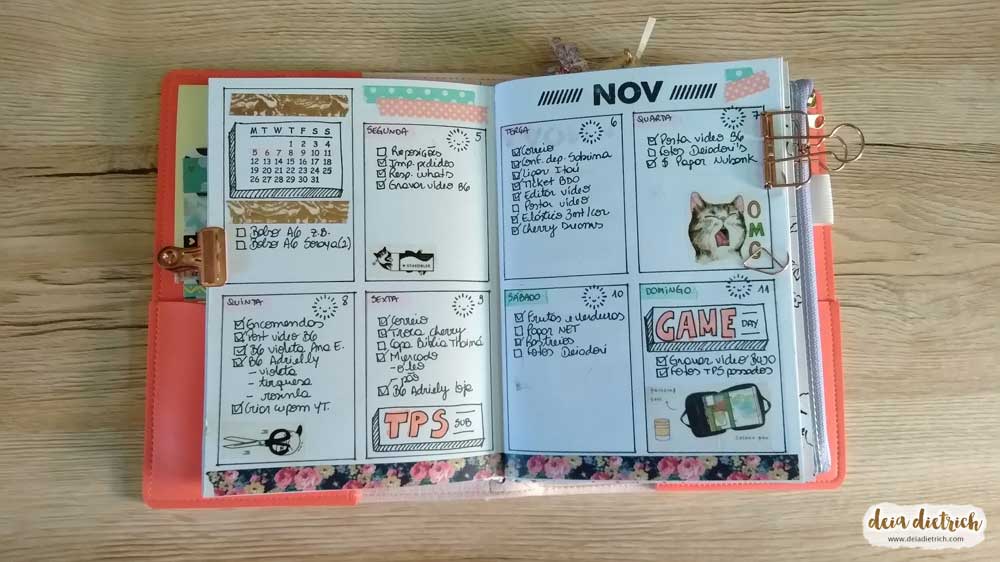 M T W T F S S
1 2 3 4
5 6 7 8 9 10 11
12 13 14 15 16 17 18
19 20 21 22 23 24 25
26 27 28 29 30 31
Bolso A6 Z.B.
Bolso A6 Soraya(2)
SEGUNDA 5
Reposições
Imp. pedidos
Resp. whats
Gravar vídeo B6
QUINTA 8
Encomendas
Post vídeo B6
B6 violeta Ana E.
B6 Adrielly
- violeta
- turquesa
- rosinha
Criar cupom YT.
SEXTA 9
Correio
Troca cherry
Capa Bíblia Thainá
Mercado
- óleo
- pão
B6 Adriely loja
TPS SUB
//////// NOV ////////
TERÇA 6
Correio
Conf. dep. Sabrina
Ligar Itaú
Ticket BDO
Editar vídeo
Postar vídeo
Elástico
Cherry Dreams
QUARTA 7
Posta vídeo B6
Fotos Deiadori's
$ Pagar Nubank
OMG
SÁBADO 10
Frutas e verduras
Pagar NET
Rastreios
Fotos Deiadori
DOMINGO 11
GAME DAY
Gravar vídeo BUJO
Fotos TPS passados
deia dietrich
www.deiadietrich.com